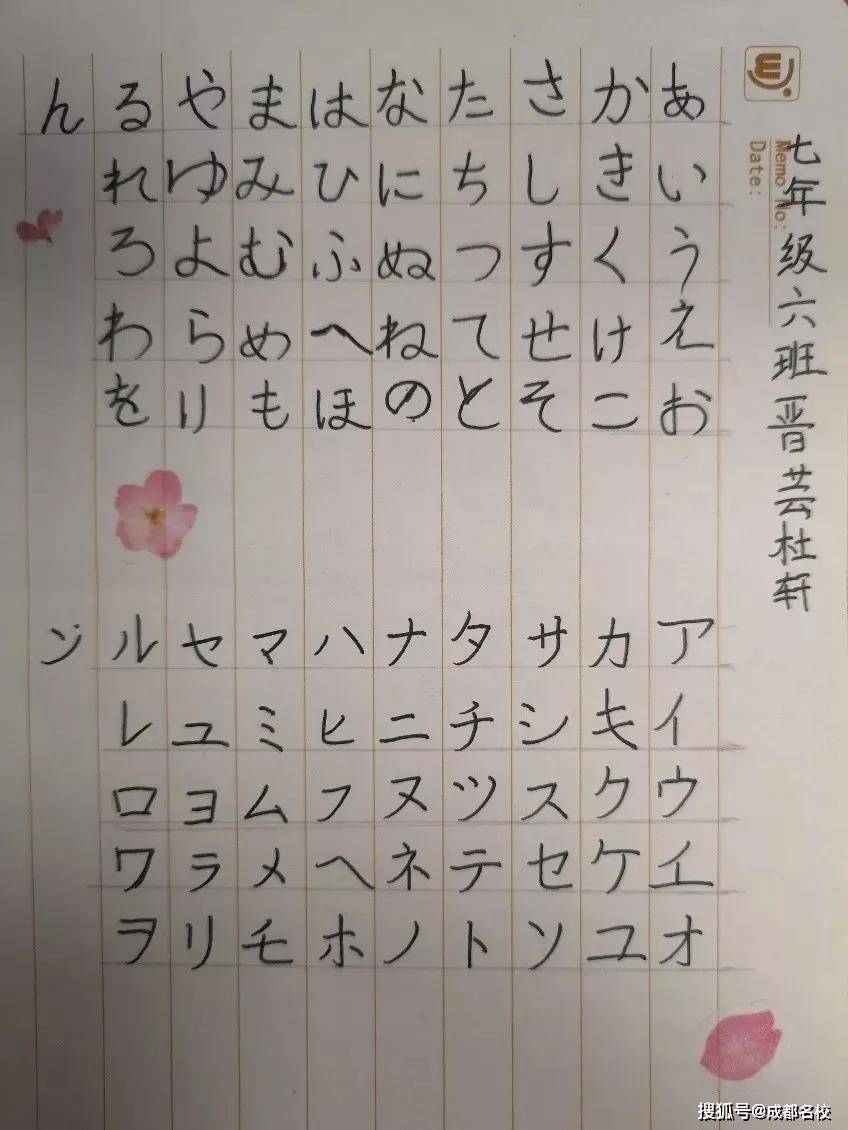 Memo No:
Date:
七年级六班晋芸杜轩
あいうえお
かきくけこ
さしすせそ
たちつてと
なにぬねの
はひふへほ
まみむめも
やゆよらり
るれろわを
ん
アイウエオ
カキクケコ
サシスセソ
タチツテト
ナニヌネノ
ハヒフヘホ
マミムメモ
ヤユヨラリ
ルレロワヲ
ン
搜狐号@成都名校